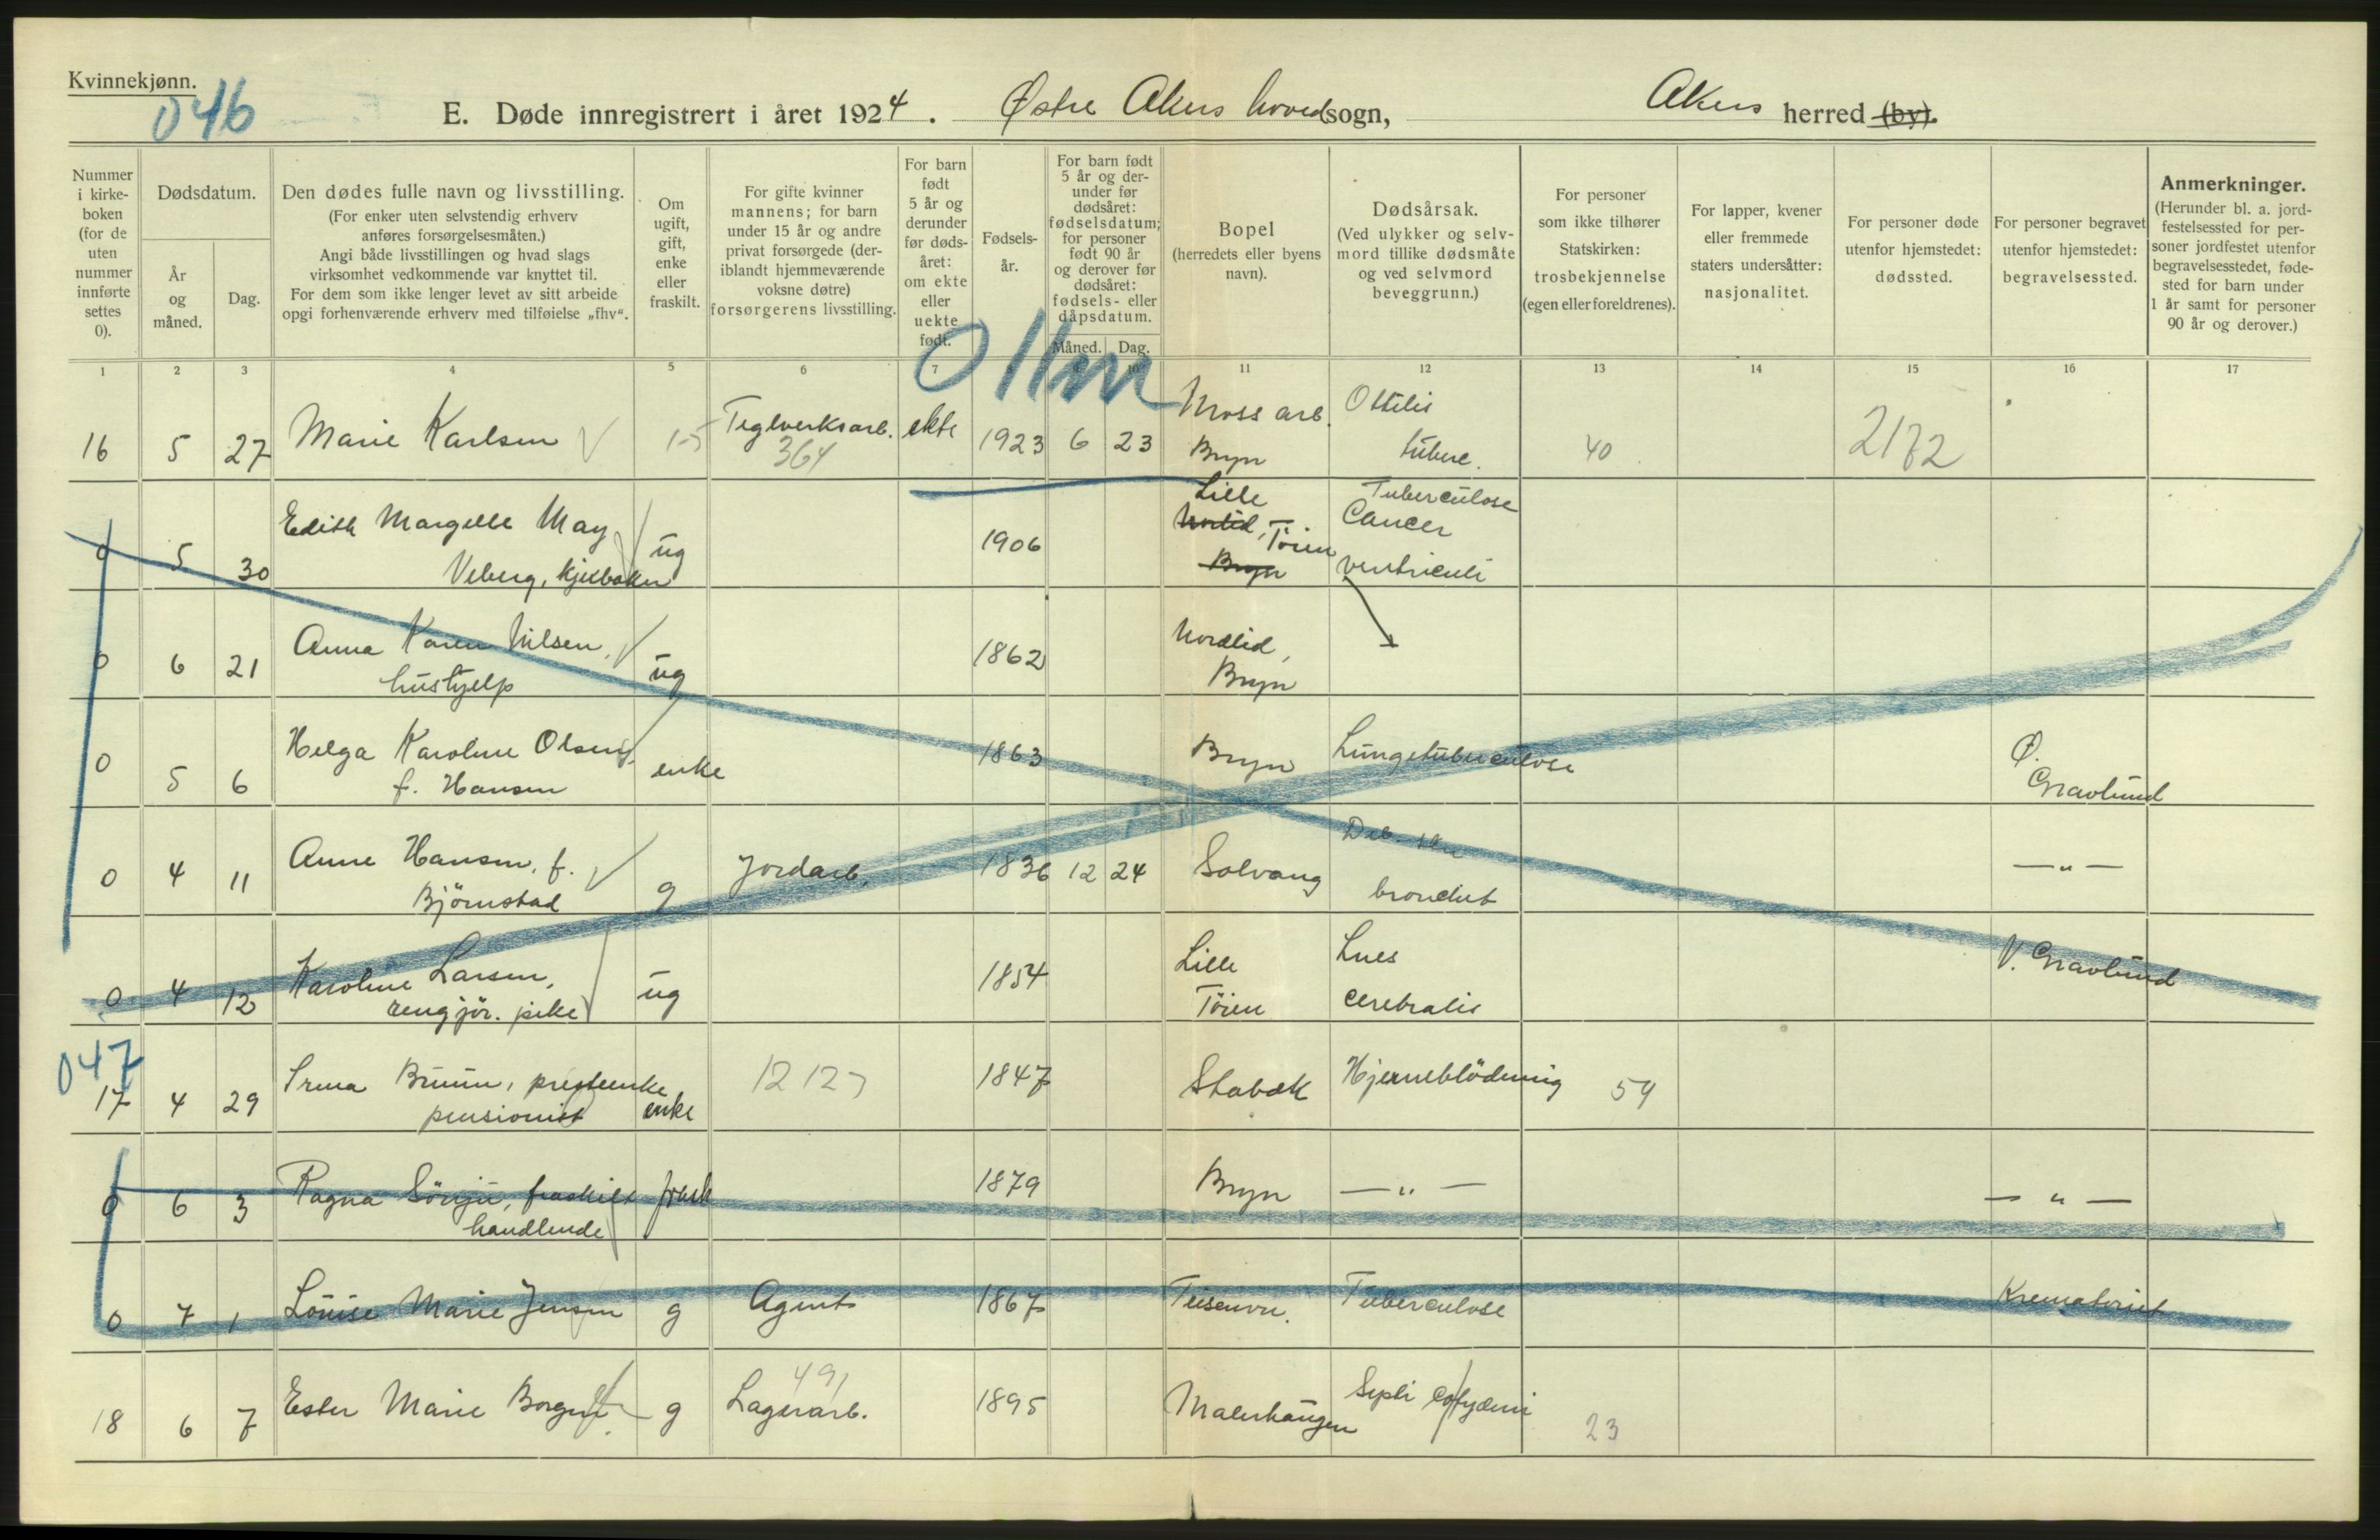 Kvinnekjønn.
046
E. Døde innregistrert i året 1924. Østre Akers hovedsogn, Akers herred (by).
Nummer i kirkeboken (for de uten nummer innførte settes 0).
Dødsdatum.
År og måned.
Dag.
Den dødes fulle navn og livsstilling.
(For enker uten selvstendig erhverv anføres forsørgelsesmåten.)
Angi både livsstillingen og hvad slags virksomhet vedkommende var knyttet til.
For dem som ikke lenger levet av sitt arbeide opgi forhenværende erhverv med tilføielse „fhv“.
Om ugift, gift, enke eller fraskilt.
For gifte kvinner mannens; for barn under 15 år og andre privat forsørgede (deriblandt hjemmeværende voksne døtre) forsørgerens livsstilling.
For barn født 5 år og derunder før dødsåret: om ekte eller uekte født.
Fødselsår.
For barn født 5 år og derunder før dødsåret: fødselsdatum; for personer født 90 år og derover før dødsåret: fødsels- eller dåpsdatum.
Måned. Dag.
Bopel
(herredets eller byens navn).
Dødsårsak.
(Ved ulykker og selvmord tillike dødsmåte og ved selvmord beveggrunn.)
For personer som ikke tilhører Statskirken: trosbekjennelse (egen eller foreldrenes).
For lapper, kvener eller fremmede staters undersåtter: nasjonalitet.
For personer døde utenfor hjemstedet: dødssted.
For personer begravet utenfor hjemstedet: begravelsessted.
Anmerkninger.
(Herunder bl. a. jordfestelsessted for personer jordfestet utenfor begravelsesstedet, fødested for barn under 1 år samt for personer 90 år og derover.)
1 2 3 4 5 6 7 10 11 12 13 14 15 16 17
16 5 27 Marie Karlsen Teglverksarb. 364 ekte 1923 6 23 Moss arb. Bryn Ottitis tuberc. 40 2172
0 5 30 Edith Margelle May Veberg, kjexbaker ug 1906 Lille Nordlid, Töien Bryn Tuberculose Cancer ventriculi
0 6 21 Anna Karen Nilsen, hushjelp ug 1862 Nordlid, Bryn
0 5 6 Helga Karoline Olsen, f. Hansen enke 1863 Bryn Lungetuberculose Ø. Gravlund
0 4 11 Anne Hansen, f. Björnstad g Jordarb. 1836 12 24 Solvang Deb. bronchit — „ —
0 4 12 Karoline Larsen, rengjör. pike ug 1854 Lille Töien Lues cerebralis V. Gravlund
047
17 4 29 Irma Bruun, presteenke pensionist enke 1212 1847 Stabæk Hjerneblödning 54
0 6 3 Ragna Sönju, fraskilt handlende frask 1879 Bryn — „ — — „ —
0 7 1 Louise Marie Jensen g Agent 1867 Teisenvn. Tuberculose Krematoriet
18 6 7 Ester Marie Borgen g Lagerarb. 491 1895 Malerhaugen 23